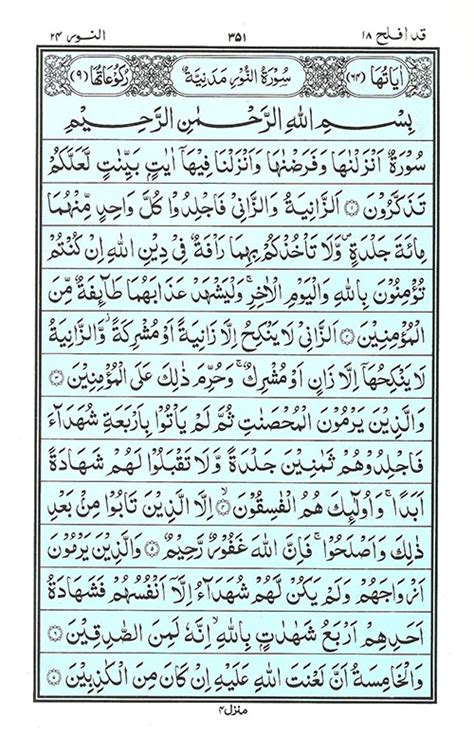 قد افلح ١٨ ٣٥١ النور ٢٤
اٰيَاتُهَا (٦٤) سُوْرَةُ النُّوْرِ مَدَنِيَّةٌ رُكُوْعَاتُهَا (٩)
بِسْمِ اللّٰهِ الرَّحْمٰنِ الرَّحِيْمِ
سُوْرَةٌ اَنْزَلْنٰهَا وَفَرَضْنٰهَا وَاَنْزَلْنَا فِيْهَاۤ اٰيٰتٍۭ بَيِّنٰتٍ لَّعَلَّكُمْ
تَذَكَّرُوْنَ ۝١ اَلزَّانِيَةُ وَالزَّانِيْ فَاجْلِدُوْا كُلَّ وَاحِدٍ مِّنْهُمَا
مِائَةَ جَلْدَةٍ ۪ وَّلَا تَاْخُذْكُمْ بِهِمَا رَاْفَةٌ فِيْ دِيْنِ اللّٰهِ اِنْ كُنْتُمْ
تُؤْمِنُوْنَ بِاللّٰهِ وَالْيَوْمِ الْاٰخِرِ ۚ وَلْيَشْهَدْ عَذَابَهُمَا طَآئِفَةٌ مِّنَ
الْمُؤْمِنِيْنَ ۝٢ اَلزَّانِيْ لَا يَنْكِحُ اِلَّا زَانِيَةً اَوْ مُشْرِكَةً ۡ وَّالزَّانِيَةُ
لَا يَنْكِحُهَاۤ اِلَّا زَانٍ اَوْ مُشْرِكٌ ۚ وَحُرِّمَ ذٰلِكَ عَلَى الْمُؤْمِنِيْنَ ۝٣
وَالَّذِيْنَ يَرْمُوْنَ الْمُحْصَنٰتِ ثُمَّ لَمْ يَاْتُوْا بِاَرْبَعَةِ شُهَدَآءَ
فَاجْلِدُوْهُمْ ثَمٰنِيْنَ جَلْدَةً وَّلَا تَقْبَلُوْا لَهُمْ شَهَادَةً
اَبَدًا ۚ وَاُولٰٓئِكَ هُمُ الْفٰسِقُوْنَ ۝٤ۙ اِلَّا الَّذِيْنَ تَابُوْا مِنْۢ بَعْدِ
ذٰلِكَ وَاَصْلَحُوْا ۚ فَاِنَّ اللّٰهَ غَفُوْرٌ رَّحِيْمٌ ۝٥ وَالَّذِيْنَ يَرْمُوْنَ
اَزْوَاجَهُمْ وَلَمْ يَكُنْ لَّهُمْ شُهَدَآءُ اِلَّاۤ اَنْفُسُهُمْ فَشَهَادَةُ
اَحَدِهِمْ اَرْبَعُ شَهٰدٰتٍۭ بِاللّٰهِ ۙ اِنَّهٗ لَمِنَ الصّٰدِقِيْنَ ۝٦
وَالْخَامِسَةُ اَنَّ لَعْنَتَ اللّٰهِ عَلَيْهِ اِنْ كَانَ مِنَ الْكٰذِبِيْنَ ۝٧
منزل ٤